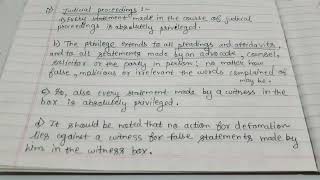 2) Judicial proceedings :-
a) Every statement made in the course of judicial
proceedings is absolutely privileged.
b) The privilege extends to all pleadings and affidavits,
and to all statements made by an advocate, counsel,
solicitor or the party in person; no matter how
false, malicious or irrelevant the words complained of
may be.
c) So, also every statement made by a witness in the
box is absolutely privileged.
d) It should be noted that no action for defamation
lies against a witness for false statements made by
him in the witness box.